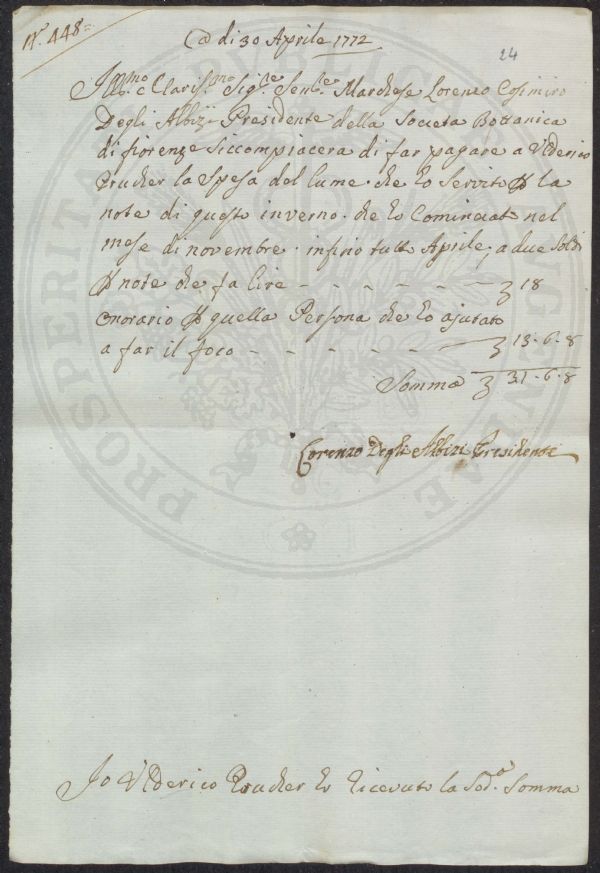 N.° 448=
A di 30 Aprile 1772
24
Ill:mo e Claris:mo Sig:re Sen:re Marchese Lorenzo Cosimiro
Degli Albizi Presidente della Societa Bottanica
di fiorenze si compiacera di far pagare a Vlderico
Prucher la Spesa del lume. che ho Servito p la
note di questo inverno. che ho Cominciato nel
mese di novembre. infino tutt Aprile, a due Soldi
p note che fa lire - - - - - 18
Onorario p quella Persona che ho ajutato
a far il foco - - - - - - 13-6-8
Somma 31-6-8
Lorenzo Degli Albizi Presidente
Jo Vlderico Prucher ho Ricevuto la Sod.a Somma
PROSPERITATI PUBLICAE